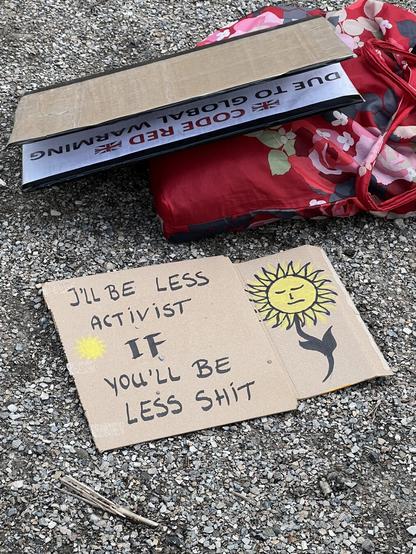 CODE RED
DUE TO GLOBAL WARMING
I'LL BE LESS
ACTIVIST
IF
YOU'LL BE
LESS SHIT